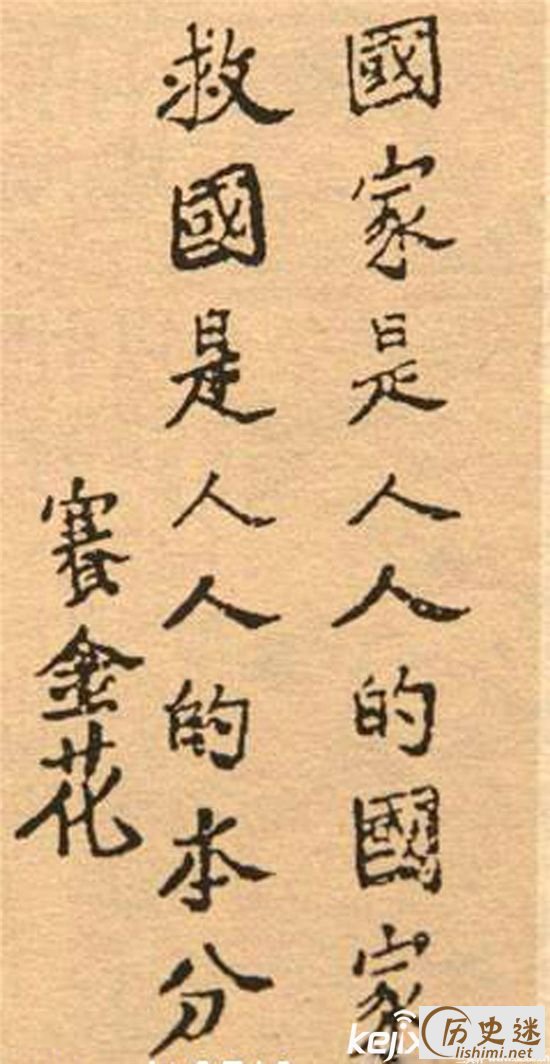 國家是人人的國家
救國是人人的本分
賽金花
kejix
历史迷
lishimi.net